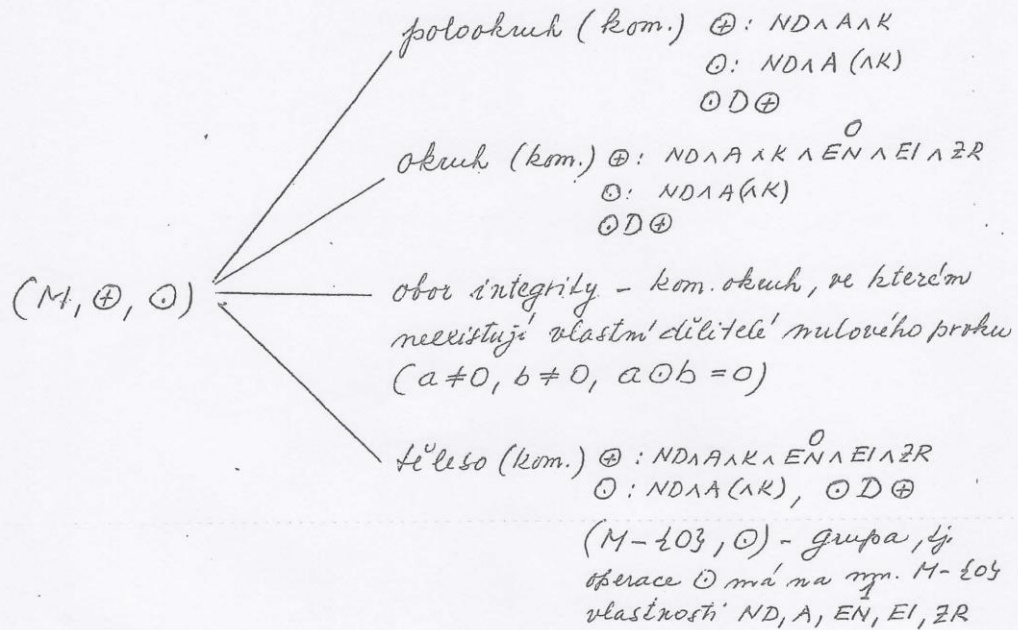 polookruh (kom.) ⊕: ND∧A∧K
⊙: ND∧A (∧K)
⊙D⊕
0
okruh (kom.) ⊕: ND∧A∧K∧EN∧EI∧ZR
⊙: ND∧A(∧K)
⊙D⊕
(M, ⊕, ⊙)
obor integrity – kom. okruh, ve kterém
neexistují vlastní dělitelé nulového prvku
(a≠0, b≠0, a⊙b=0)
0
těleso (kom.) ⊕: ND∧A∧K∧EN∧EI∧ZR
⊙: ND∧A(∧K), ⊙D⊕
(M-{0}, ⊙) - grupa, tj.
operace ⊙ má na mn. M-{0}
1
vlastnosti ND, A, EN, EI, ZR